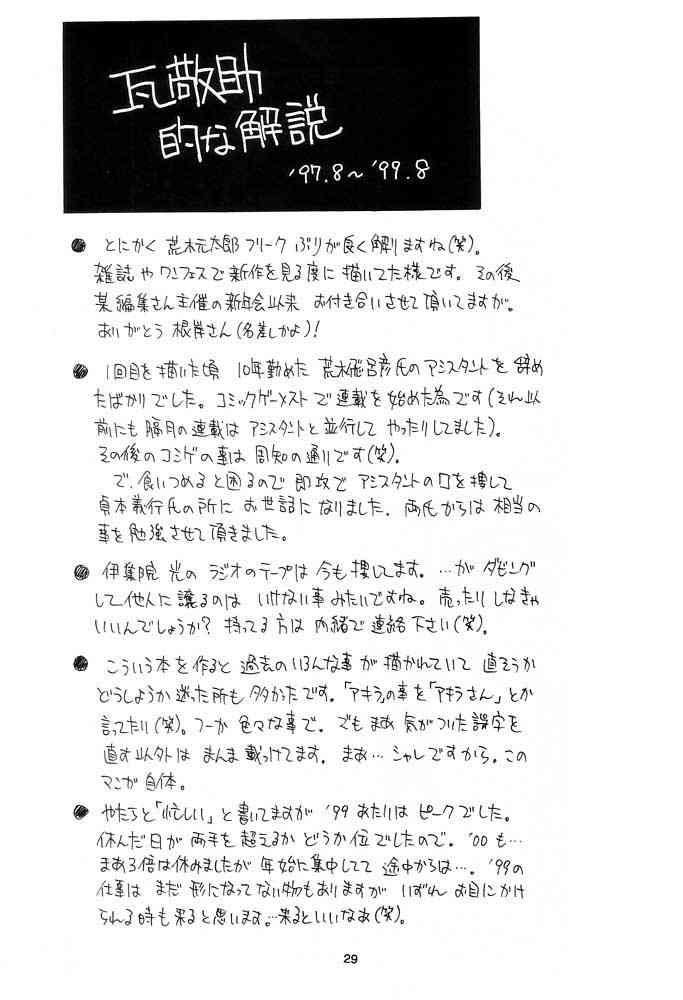 瓦敬助
的な解説
'97.8～'99.8
● とにかく 荒木元太郎フリーク ぶりが良く解りますね(笑)。
雑誌やワンフェスで新作を見る度に描いてた様です。その後
某編集さん主催の新年会以来 お付き合いさせて頂いてますが。
ありがとう 根岸さん(名差しかよ)!
● 1回目を描いた頃 10年勤めた 荒木飛呂彦氏のアシスタントを 辞め
たばかりでした。コミックゲーメストで連載を始めた為です(それ以
前にも隔月の連載は アシスタントと並行して やったりしてました)。
その後のコミゲの事は 周知の通りです(笑)。
で、食いつめると困るので 即攻で アシスタントの口を捜して
貞本義行氏の所に お世話になりました。両氏からは 相当の
事を勉強させて頂きました。
● 伊集院 光の ラジオのテープは 今も捜してます。…が ダビング
して他人に譲るのは いけない事みたいですね。売ったりしなきゃ
いいんでしょうか? 持ってる方は 内緒で連絡下さい(笑)。
● こういう本を作ると 過去のいろんな事が描かれていて 直そうか
どうしようか 迷った所も 多かったです。「アキラ」の事を「アキラさん」とか
言ってたり(笑)。つーか 色々な事で。でもまあ 気がついた誤字を
直す以外は まんま載っけてます。まあ… シャレですから。この
マンガ自体。
● やたらと「忙しい」と書いてますが '99あたりは ピークでした。
休んだ日が両手を超えるかどうか位でしたので。'00も…
まあ3倍は休みましたが 年始に集中してて 途中からは…。'99の
仕事は まだ 形になってない物もありますが いずれ お目にかけ
られる時も来ると思います。…来るといいなあ(笑)。
29